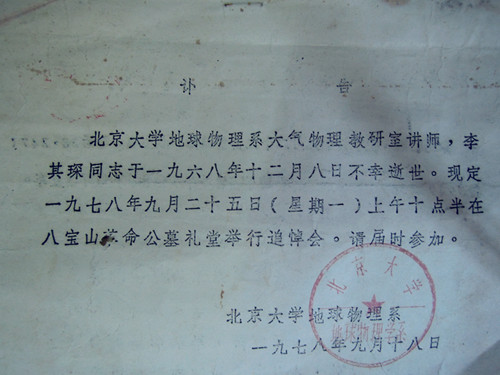 讣 告
北京大学地球物理系大气物理教研室讲师，李
其琛同志于一九六八年十二月八日不幸逝世。现定
一九七八年九月二十五日（星期一）上午十点半在
八宝山革命公墓礼堂举行追悼会。请届时参加。
北京大学
地球物理学系
北京大学地球物理系
一九七八年九月十八日